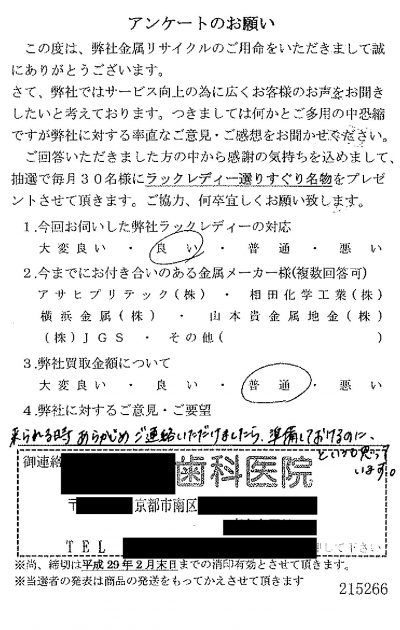 アンケートのお願い
この度は、弊社金属リサイクルのご用命をいただきまして誠
にありがとうございます。
さて、弊社ではサービス向上の為に広くお客様のお声をお聞き
したいと考えております。つきましては何かとご多用の中恐縮
ですが弊社に対する率直なご意見・ご感想をお聞かせください。
ご回答いただきました方の中から感謝の気持ちを込めまして、
抽選で毎月30名様にラックレディー選りすぐり名物をプレゼ
ントさせて頂きます。ご協力、何卒宜しくお願い致します。
1.今回お伺いした弊社ラックレディーの対応
大変良い ・ 良い ・ 普通 ・ 悪い
2.今までにお付き合いのある金属メーカー様(複数回答可)
アサヒプリテック(株) ・ 相田化学工業(株)
横浜金属(株) ・ 山本貴金属地金(株)
(株)JGS ・ その他( )
3.弊社買取金額について
大変良い ・ 良い ・ 普通 ・ 悪い
4.弊社に対するご意見・ご要望
来られる時あらかじめご連絡いただけましたら、準備しておけるのに、
といつも思って
います。
御連絡
歯科医院
〒 京都市南区
TEL 押して下さい
※尚、締切は平成29年2月末日までの消印有効とさせて頂きます。
※当選者の発表は商品の発送をもってかえさせて頂きます
215266